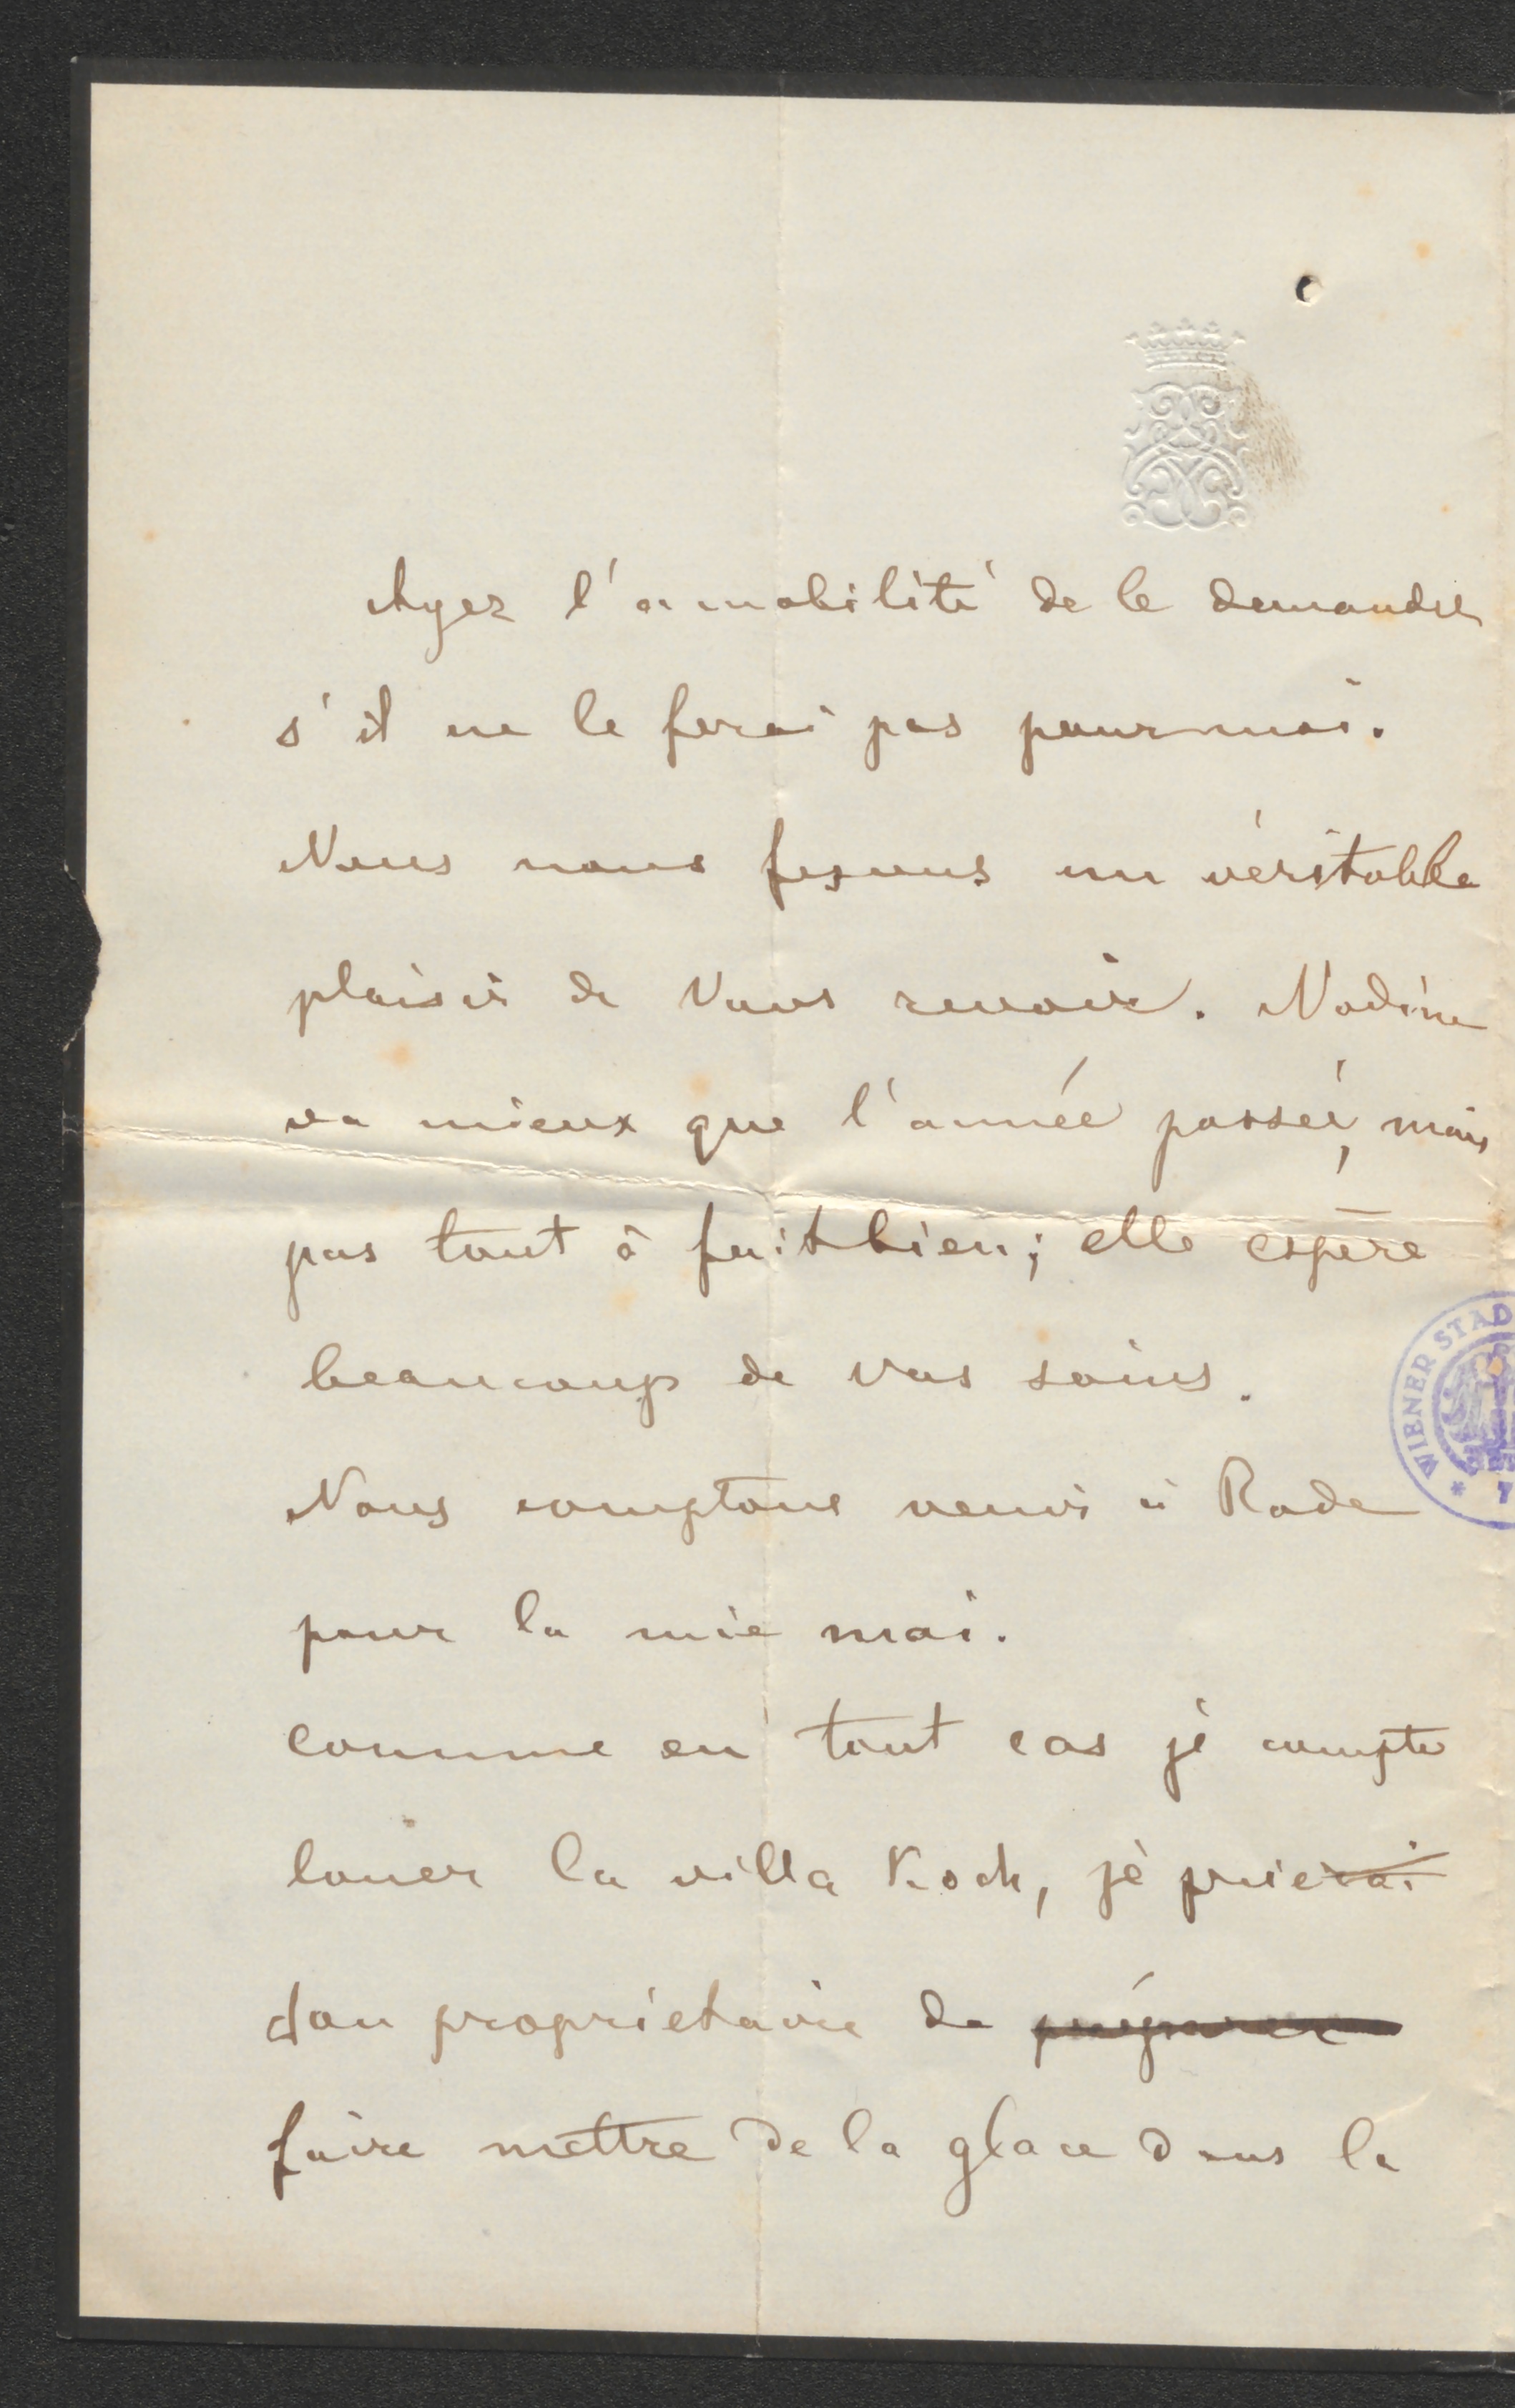 Ayez l'amabilité de le demander
s'il ne le ferai pas pour moi.
Nous nous fesons un véritable
plaisir de Vous revoir. Nadine
va mieux que l'année passée, mais
pas tout à fait bien; elle espère
beaucoup de vos soins.
Nous comptons venir à Rode
pour la mie mai.
comme en tout cas je compte
louer la villa Koch, je prierai
son propriétaire de préparer
faire mettre de la glace dans la
WIENER STAD